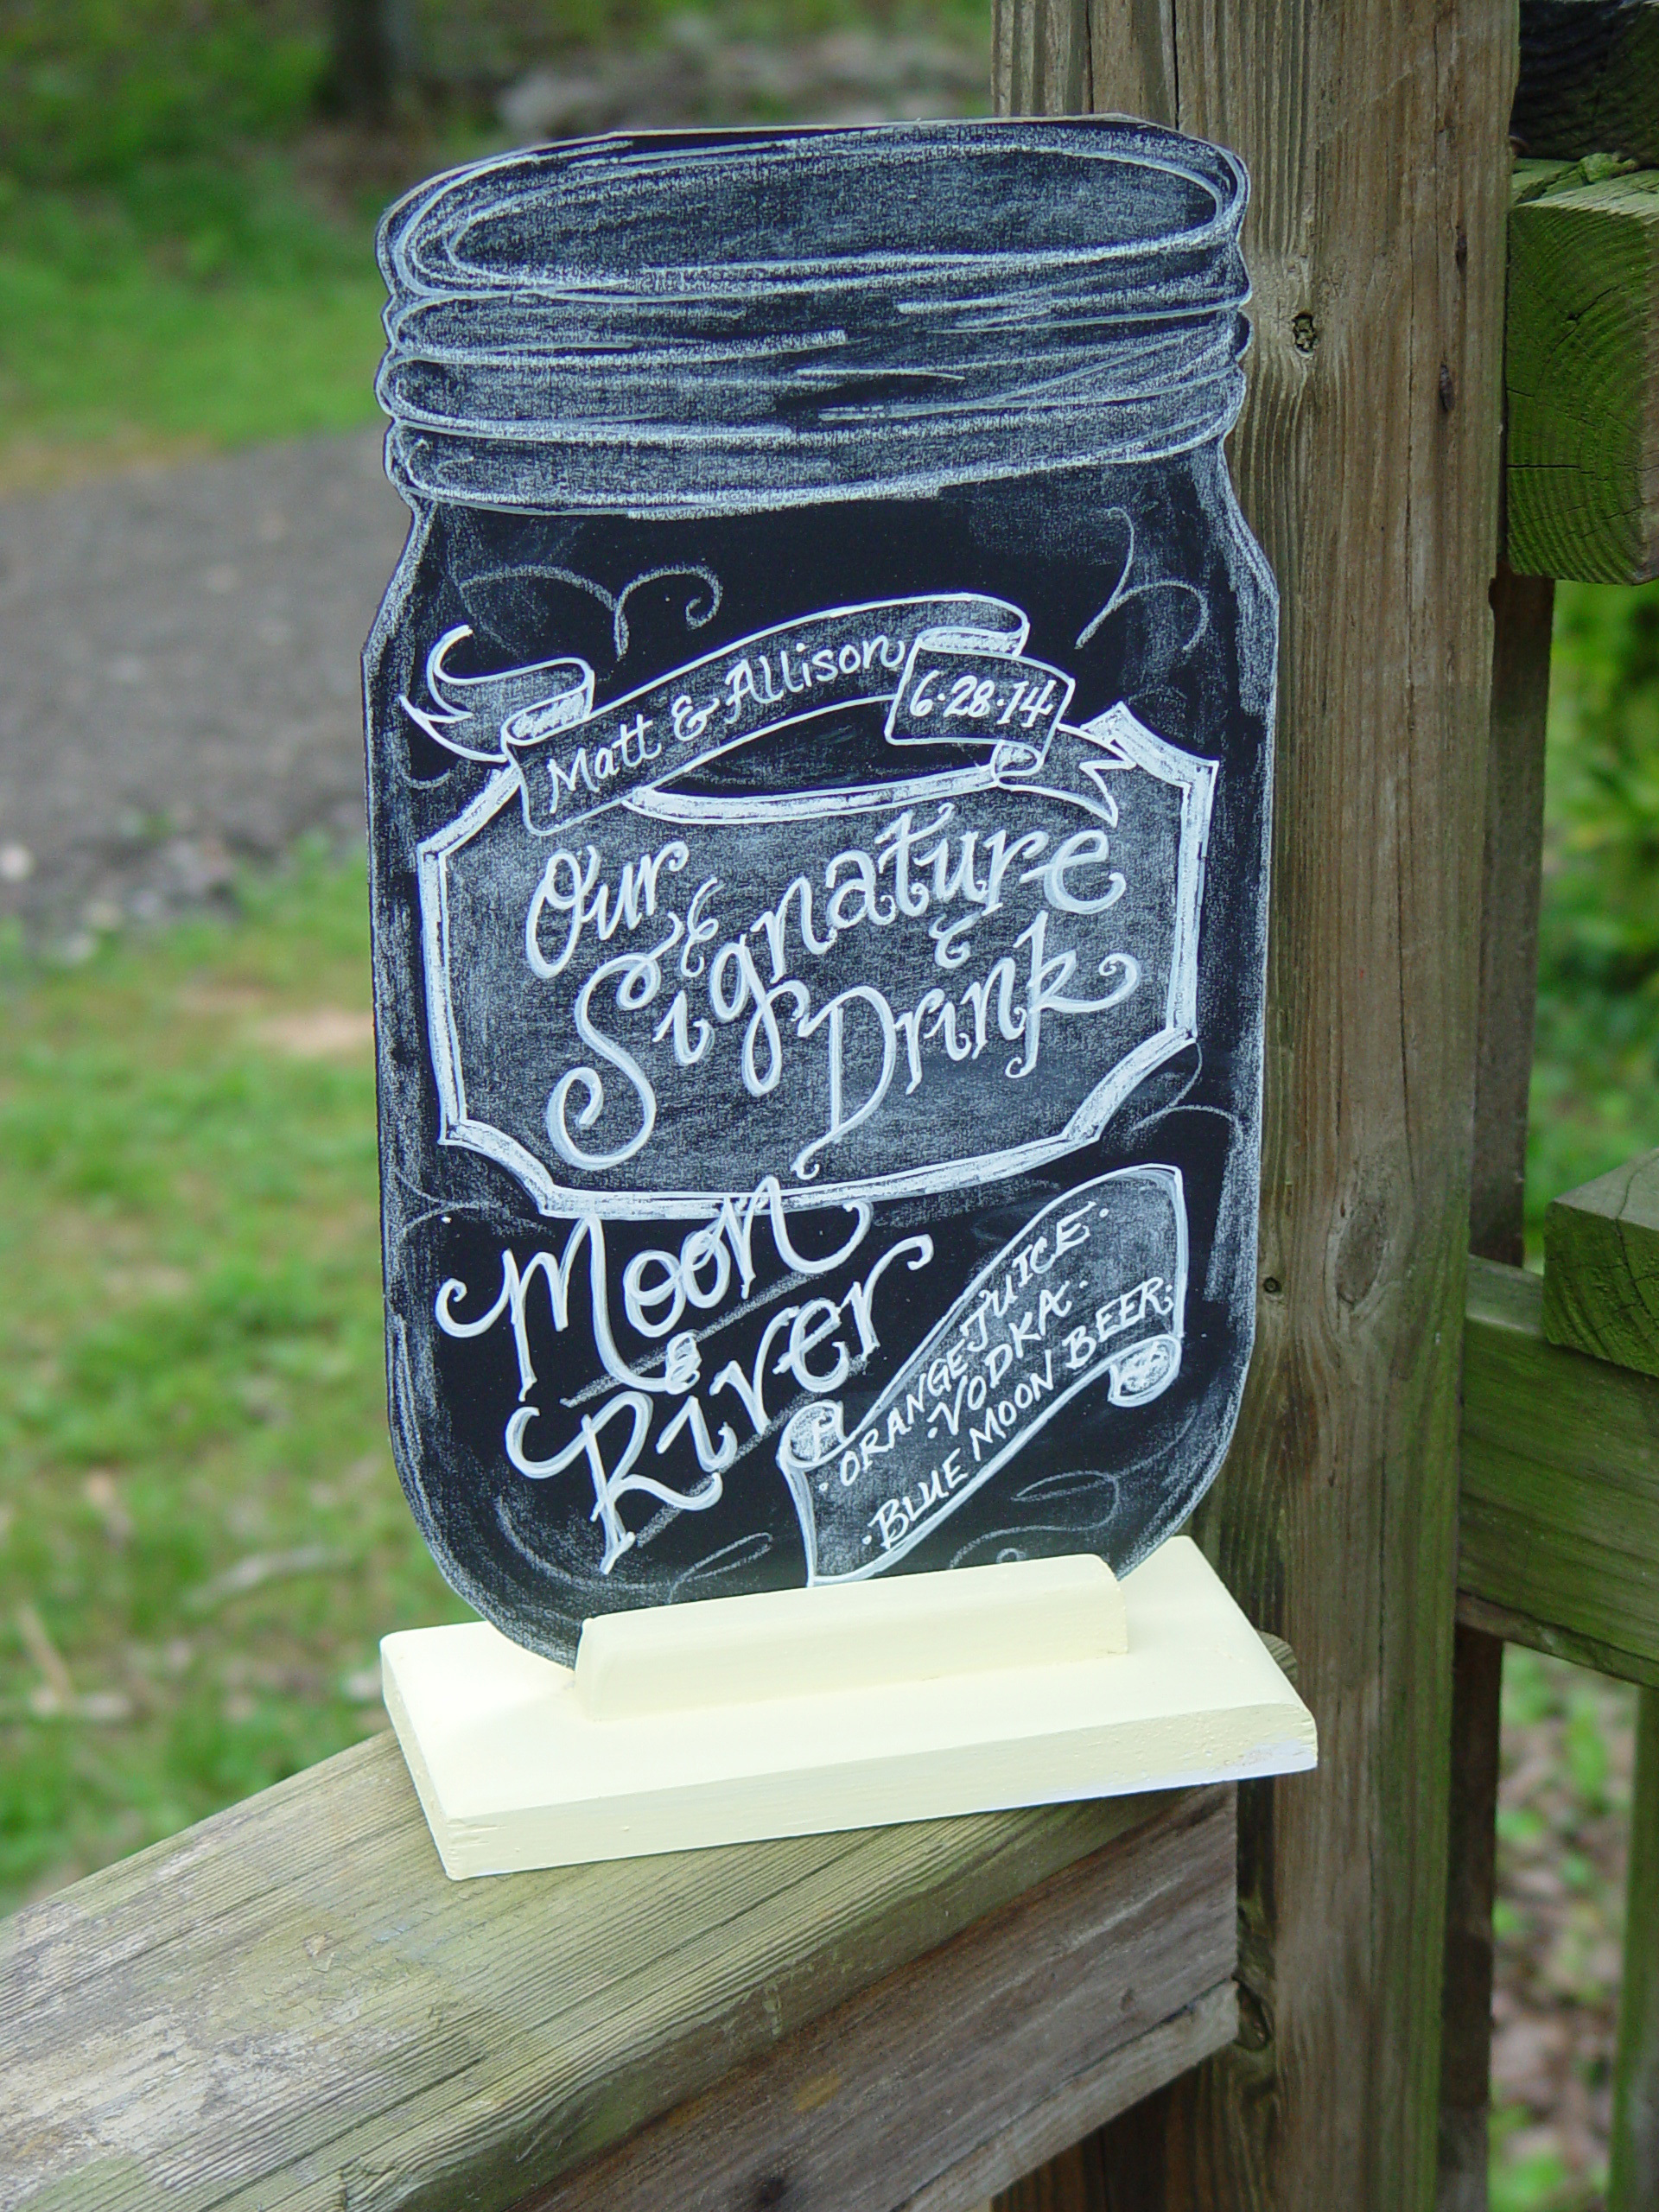 Matt & Allison
6·28·14
Our
Signature
Drink
Moon
River
·ORANGE JUICE·
·VODKA·
·BLUE MOON BEER·